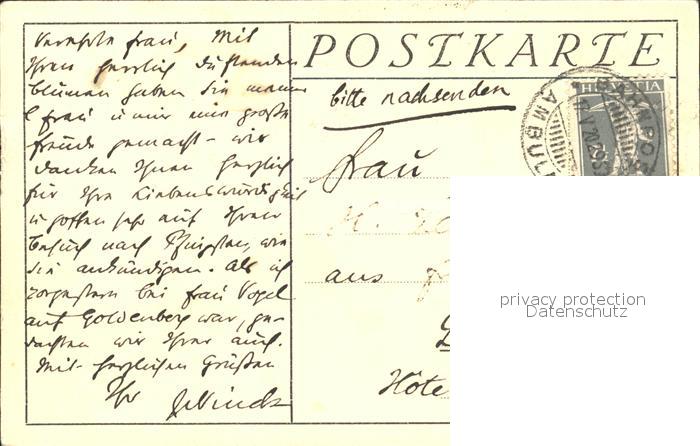 Verehrte Frau, Mit
Ihren herrlich duftenden
Blumen haben Sie meiner
l. Frau u. mir eine große
Freude gemacht - wir
danken Ihnen herzlich
für Ihre Liebenswürdigkeit
u. hoffen sehr auf Ihren
Besuch nach Pfingsten, wie
Sie ankündigen. Als ich
vorgestern bei Frau Vogel
auf Goldenberg war, ge-
dachten wir Ihrer auch.
Mit herzlichen Grüßen
Ihr
POSTKARTE
bitte nachsenden
Frau
aus
Hôte
BAHNPO
AMBUL
privacy protection
Datenschutz